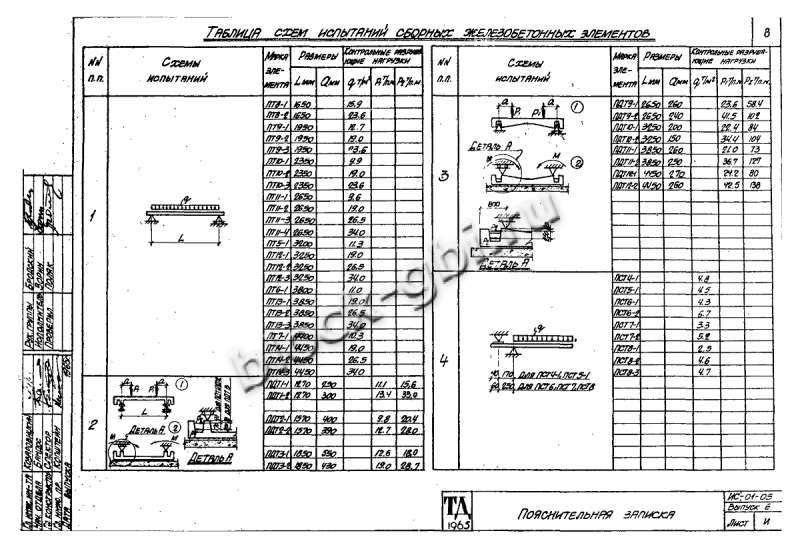 Таблица схем испытаний сборных железобетонных элементов
8
NN п.п.
Схемы испытаний
Марка элемента
Размеры
Контрольные разрушающие нагрузки
L мм
a мм
q т/м²
P₁ т/п.м.
P₂ т/п.м.
1
q
L
ПТ8-1 1650 15.9
ПТ8-2 1650 23.6
ПТ9-1 1950 12.7
ПТ9-2 1950 19.0
ПТ9-3 1950
ПТ10-1 2350 9.9
ПТ10-2 2350 19.0
ПТ10-3 2350 23.6
ПТ11-1 2650 9.6
ПТ11-2 2650 19.0
ПТ11-3 2650 26.5
ПТ11-4 2650 34.0
ПТ5-1 3200 11.3
ПТ12-1 3250 19.0
ПТ12-2 3250 26.5
ПТ12-3 3250 34.0
ПТ6-1 3800 11.0
ПТ13-1 3850 19.0
ПТ13-2 3850 26.5
ПТ13-3 3850 34.0
ПТ7-1 4400 10.3
ПТ14-1 4450 19.0
ПТ14-2 4450 26.5
ПТ14-3 4450 34.0
2
a
P₁
P₁
a
1
L
Деталь А
2
M
M
Деталь А
ПДТ1-1 1270 290 11.1 15.6
ПДТ1-2 1270 300 13.4 33.0
ПДТ2-1 1570 400 9.8 20.4
ПДТ2-2 1570 390 12.7 28.0
ПДТ3-1 1850 550 12.6 18.0
ПДТ3-2 1850 430 19.0 28.7
NN п.п.
Схемы испытаний
Марка элемента
Размеры
Контрольные разрушающие нагрузки
L мм
a мм
q т/м²
P₁ т/п.м.
P₂ т/п.м.
3
a
P₁
P₁
a
1
Деталь А
M
M
2
800
Деталь А
ПДТ9-1 2650 260 23.6 58.4
ПДТ9-2 2650 240 41.5 102
ПДТ10-1 3250 200 22.4 84
ПДТ10-2 3250 150 34.4 104
ПДТ11-1 3850 260 21.0 73
ПДТ11-2 3850 250 36.7 127
ПДТ12-1 4450 270 24.2 80
ПДТ12-2 4450 260 42.5 138
4
q
170 для ПСТ4-1, ПСТ5-1
250 для ПСТ6, ПСТ7, ПСТ8
ПСТ4-1 4.8
ПСТ5-1 4.5
ПСТ6-1 4.3
ПСТ6-2 6.7
ПСТ7-1 3.3
ПСТ7-2 5.2
ПСТ8-1 2.5
ПСТ8-2 4.6
ПСТ8-3 4.7
block-gbi.ru
Рук. группы Бродский
Исполнитель
Проверил Поляк
Нач. отдела
Дата выпуска 1965г
ТД
1965
Пояснительная записка
ИС-01-05
Выпуск 6
Лист И